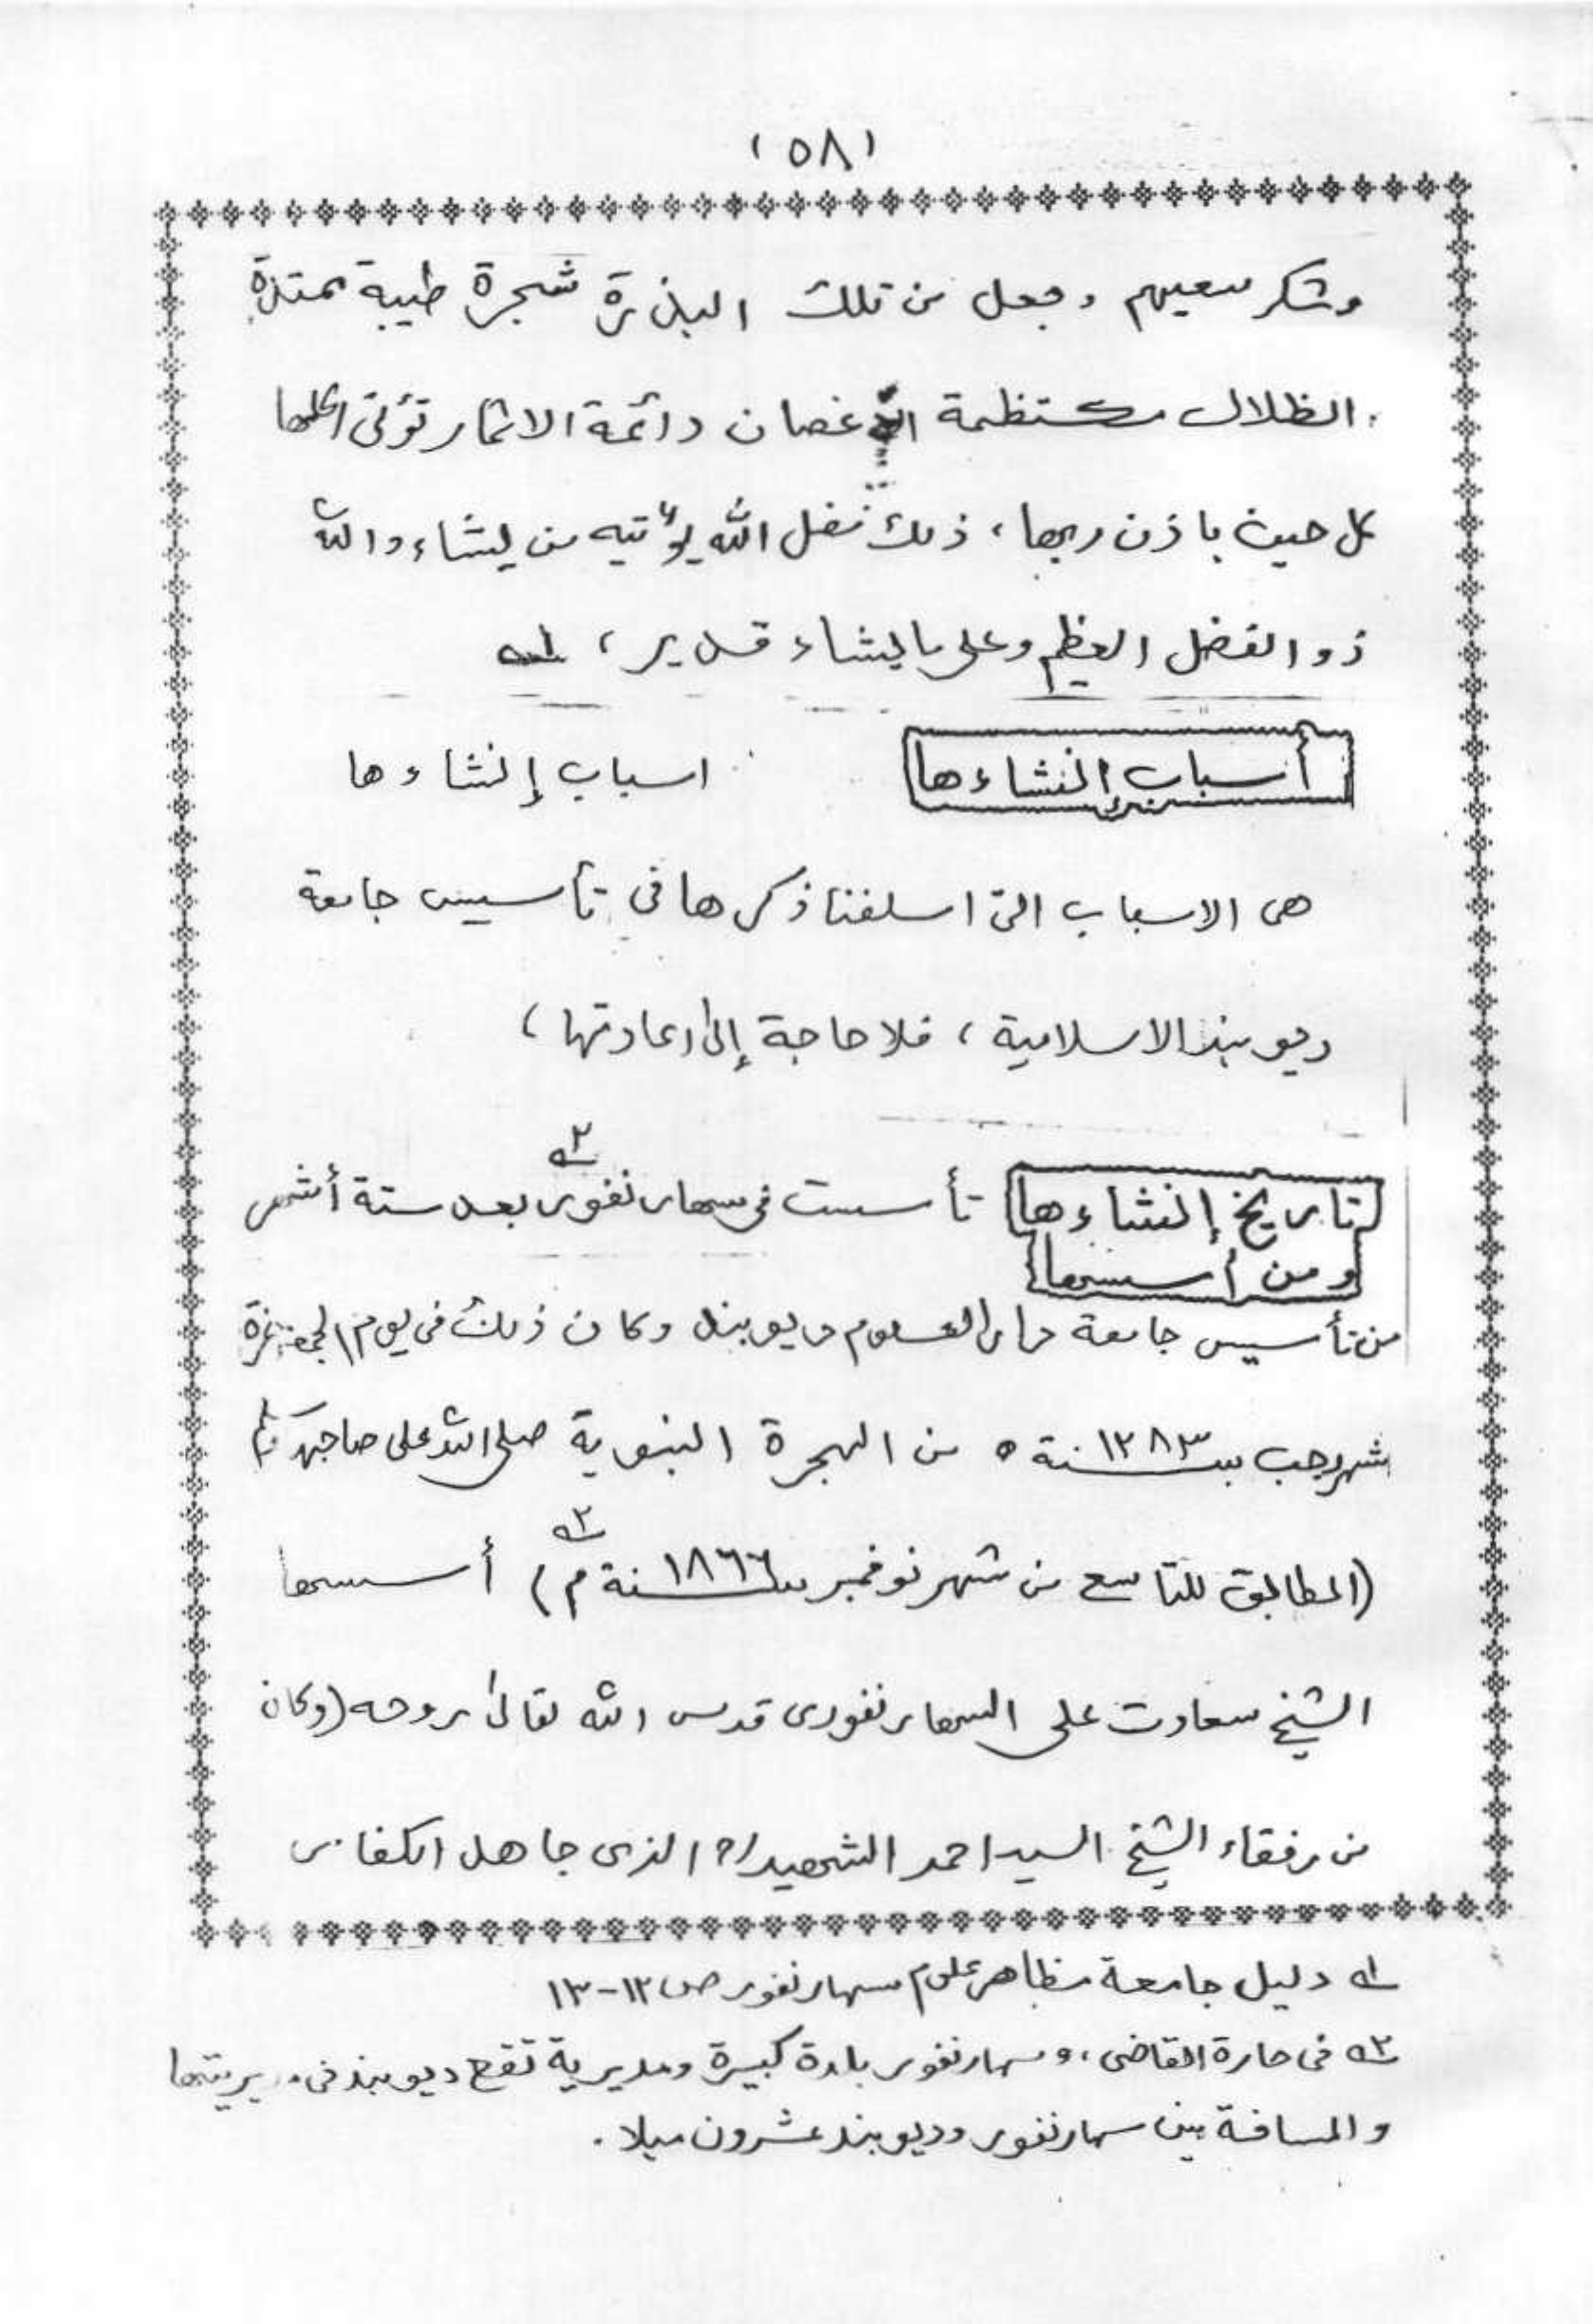 (٥٨)
وشكر سعيهم وجعل من تلك البذرة شجرة طيبة ممتدة
الظلال منتظمة الأغصان دائمة الاثمار تؤتى اكلها
كل حين باذن ربها، ذلك فضل الله يؤتيه من يشاء والله
ذو الفضل العظيم وعلى ما يشاء قدير، ١ـه
أسباب إنشاءها اسباب إنشاءها
هى الاسباب التى اسلفنا ذكرها فى تأسيس جامعة
ديوبند الاسلامية، فلا حاجة إلى اعادتها،
تاريخ إنشاءها تأسست فى سهارنفور ٢ـه بعد ستة أشهر
ومن أسسها
من تأسيس جامعة دار العلوم ديوبند وكان ذلك فى يوم الجمعة غرة
شهر رجب سنة ١٢٨٣ه من الهجرة النبوية صلى الله على صاحبها
(المطابق للتاسع من شهر نوفمبر سنة ١٨٦٦م) ٢ـه أسسها
الشيخ سعادت على السهارنفورى قدس الله تعالى روحه (وكان
من رفقاء الشيخ السيد احمد الشهيد الذى جاهد الكفار
١ـه دليل جامعة مظاهر علوم سهارنفور ص ١٢-١٣
٢ـه فى حارة القاضى، وسهارنفور بلدة كبيرة ومديرية تقع ديوبند فى مديريتها
والمسافة بين سهارنفور وديوبند عشرون ميلا.